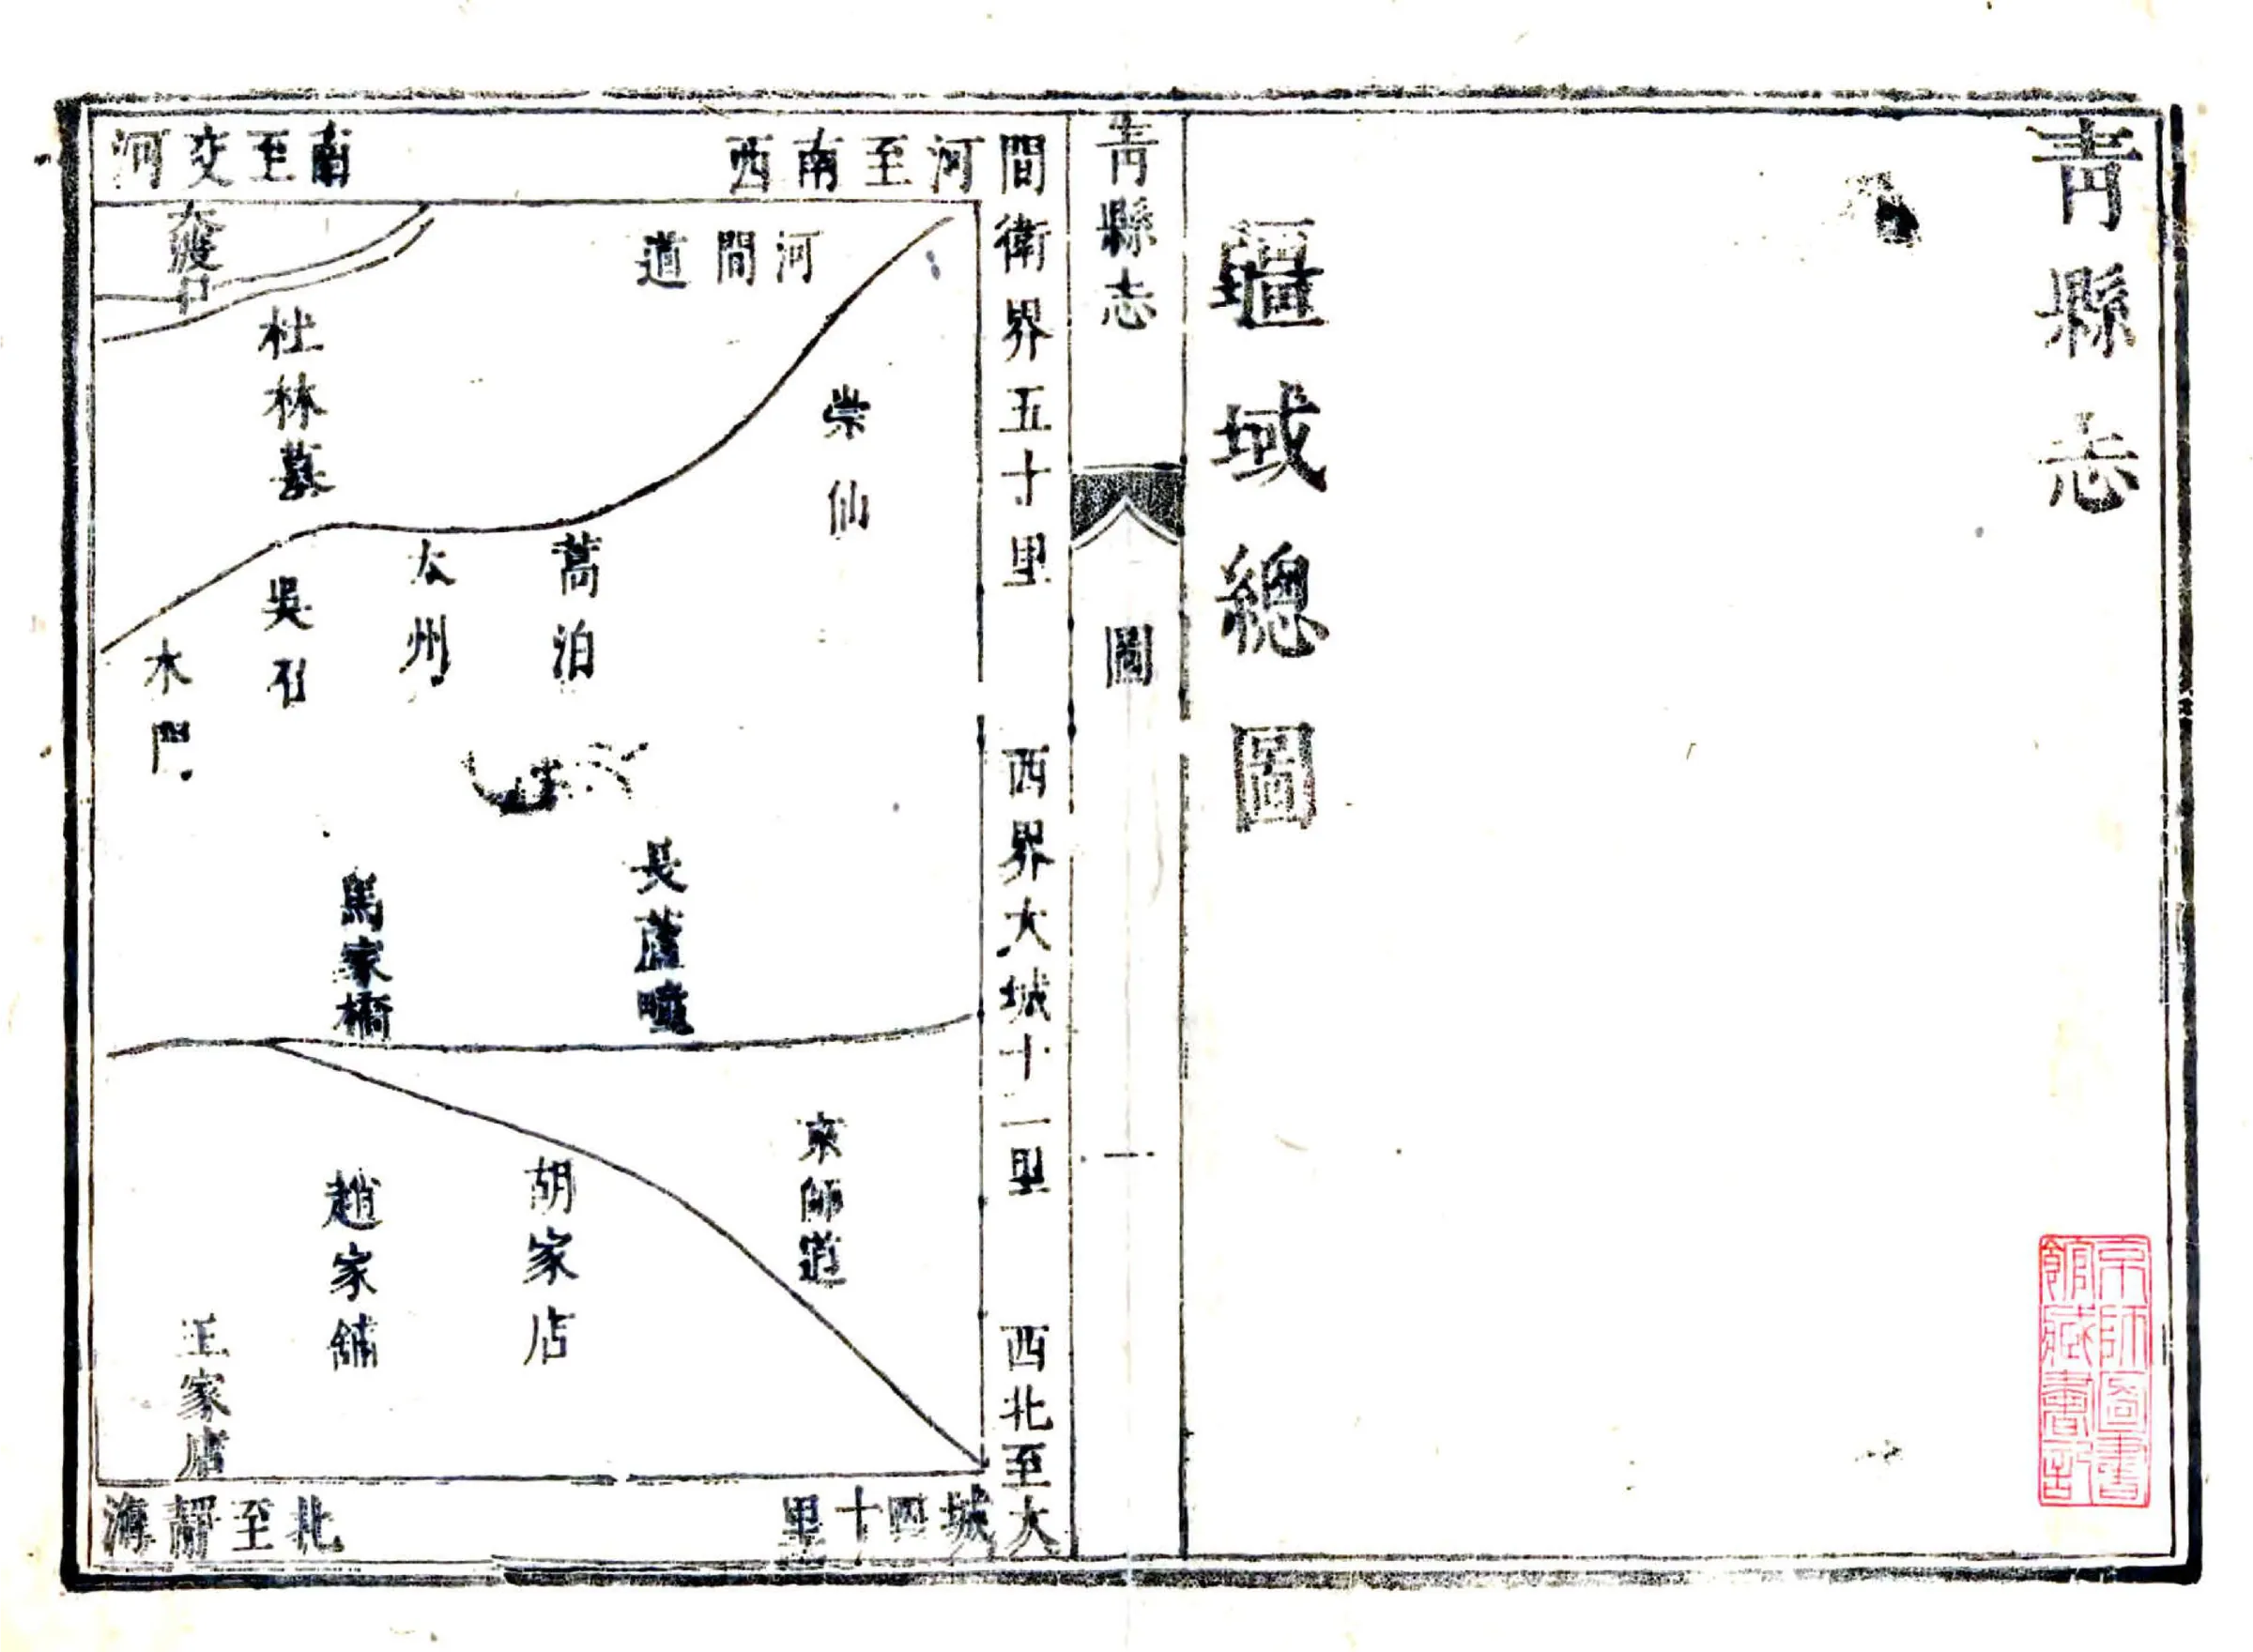 青縣志
京師圖書
館藏書記
疆域總圖
青縣志
圖
一
西南至河間衛界五十里
西界大城十二里
西北至大城四十里
南至交河
北至靜海
河間道
崇仙
杜林
蒿泊
木門
長蘆
馬家橋
京師道
胡家店
趙家舖
王家店